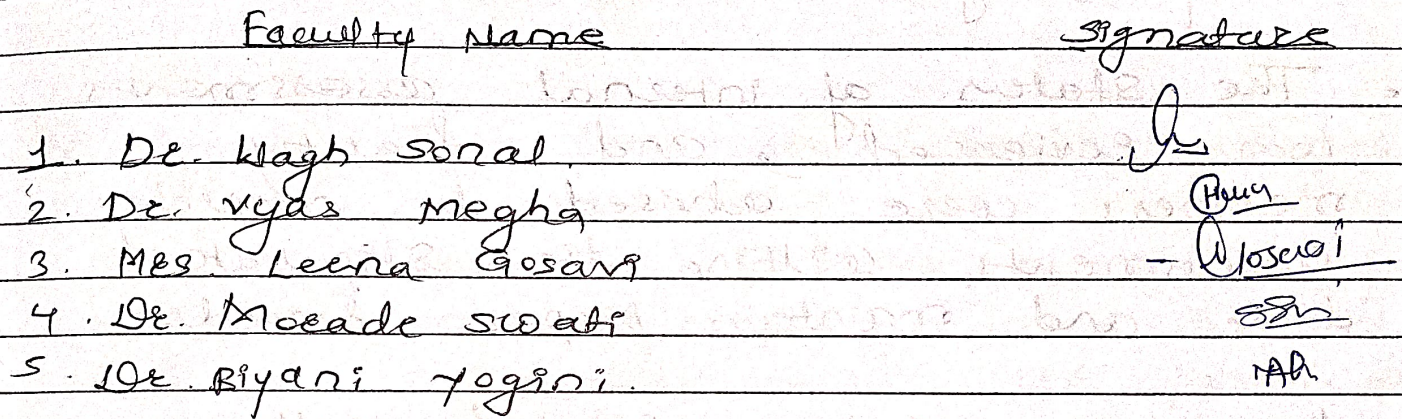 Faculty Name Signature
1. Dr. Wagh Sonal
2. Dr. Vyas Megha
3. Mrs. Leena Gosavi Gosavi
4. Dr. Morade Swati
5. Dr. Biyani Yogini.